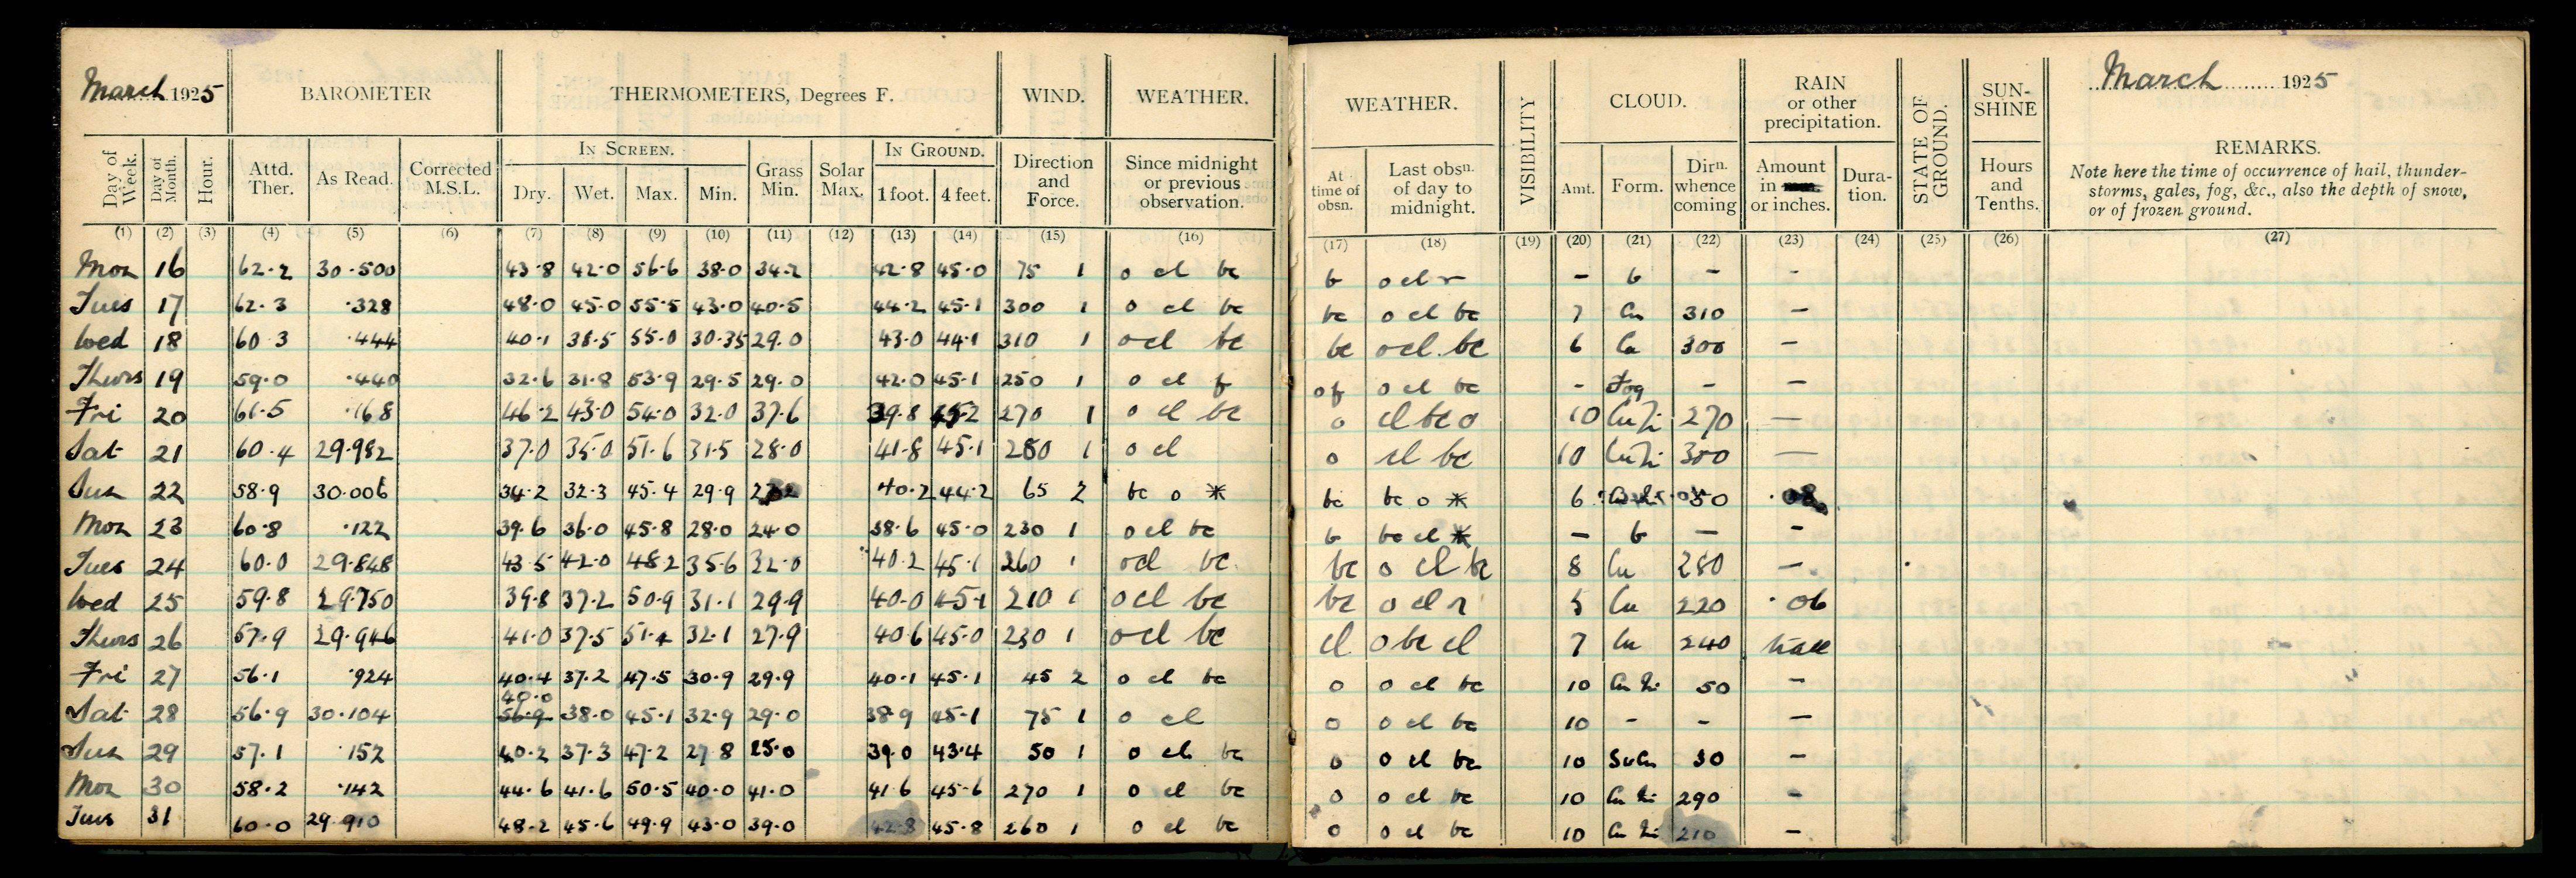 March 1925 BAROMETER THERMOMETERS, Degrees F. WIND. WEATHER.
Day of Week. Day of Month. Hour. Attd. Ther. As Read. Corrected M.S.L. IN SCREEN. Dry. Wet. Max. Min. Grass Min. Solar Max. IN GROUND. 1 foot. 4 feet. Direction and Force. Since midnight or previous observation.
(1) (2) (3) (4) (5) (6) (7) (8) (9) (10) (11) (12) (13) (14) (15) (16)
Mon 16 62.2 30.500 43.8 42.0 56.6 38.0 34.2 42.8 45.0 75 1 o cl bc
Tues 17 62.3 .328 48.0 45.0 55.5 43.0 40.5 44.2 45.1 300 1 o cl bc
Wed 18 60.3 .444 40.1 38.5 55.0 30.35 29.0 43.0 44.1 310 1 o cl bc
Thurs 19 59.0 .440 32.6 31.8 53.9 29.5 29.0 42.0 45.1 250 1 o cl f
Fri 20 61.5 .168 46.2 43.0 54.0 32.0 37.6 39.8 45.2 270 1 o cl bc
Sat 21 60.4 29.982 37.0 35.0 51.6 31.5 28.0 41.8 45.1 280 1 o cl
Sun 22 58.9 30.006 34.2 32.3 45.4 29.9 40.2 44.2 65 2 bc o *
Mon 23 60.8 .122 39.6 36.0 45.8 28.0 24.0 38.6 45.0 230 1 o cl bc
Tues 24 60.0 29.848 43.5 42.0 48.2 35.6 32.0 40.2 45.1 260 1 o cl bc
Wed 25 59.8 29.750 39.8 37.2 50.9 31.1 29.9 40.0 45.1 210 1 o cl bc
Thurs 26 57.9 29.946 41.0 37.5 51.4 32.1 27.9 40.6 45.0 230 1 o cl bc
Fri 27 56.1 .924 40.4 37.2 47.5 30.9 29.9 40.1 45.1 45 2 o cl bc
40.0
Sat 28 56.9 30.104 56.9 38.0 45.1 32.9 29.0 38.9 45.1 75 1 o cl
Sun 29 57.1 .152 40.2 37.3 47.2 27.8 25.0 39.0 43.4 50 1 o cl bc
Mon 30 58.2 .142 44.6 41.6 50.5 40.0 41.0 41.6 45.6 270 1 o cl bc
Tues 31 60.0 29.910 48.2 45.6 49.9 43.0 39.0 42.8 45.8 260 1 o cl bc
WEATHER. VISIBILITY CLOUD. RAIN or other precipitation. STATE OF GROUND. SUN-SHINE March 1925
At time of obsn. Last obsn. of day to midnight. Amt. Form. Dirn. whence coming Amount in or inches. Dura-tion. Hours and Tenths. REMARKS.
Note here the time of occurrence of hail, thunder-
storms, gales, fog, &c., also the depth of snow,
or of frozen ground.
(17) (18) (19) (20) (21) (22) (23) (24) (25) (26) (27)
b o cl r - b - -
bc o cl bc 7 Cu 310 -
bc o cl bc 6 Cu 300 -
of o cl bc - Fog - -
o cl bc o 10 Cu Ni 270 -
o cl bc 10 Cu Ni 300 -
bc bc o * 6 50 .08
b bc cl * - b - -
bc o cl bc 8 Cu 280 -
bc o cl r 5 Cu 220 .06
cl o bc cl 7 Cu 240 trace
o o cl bc 10 Cu Ni 50 -
o o cl bc 10 - - -
o o cl bc 10 StCu 30 -
o o cl bc 10 Cu Ni 290 -
o o cl bc 10 Cu Ni 210 -